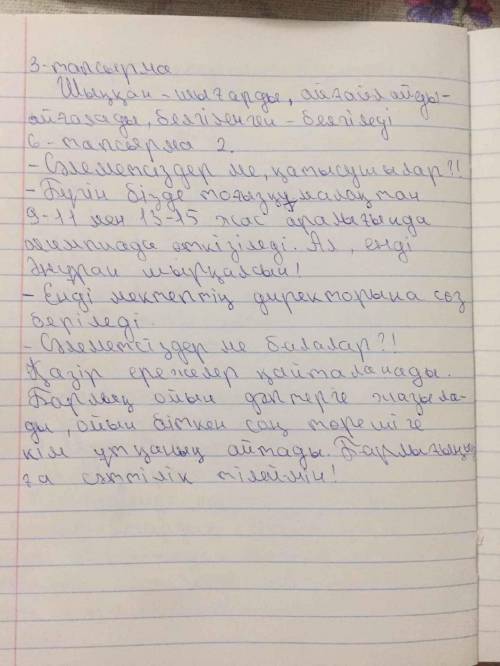 3-тапсырма
Шыққан - шығарды, айғайлайды-
айғалады, белгіленген - белгіледі
6-тапсырма 2.
- Сәлеметсіздер ме, қатысушылар?!
- Бүгін бізде тоғызқұмалақтан
9-11 мен 13-15 жас аралығында
олимпиада өткізіледі. Ал, енді
Әнұран шырқалсын!
- Енді мектептің директорына сөз
беріледі.
- Сәлеметсіздер ме балалар?!
Қазір ережелер қайталанады.
Барлық ойын дәптерге жазыла-
ды, ойын біткен соң төрешіге
кім ұтқанын айтады. Барлығыңыз
ға сәттілік тілеймін!